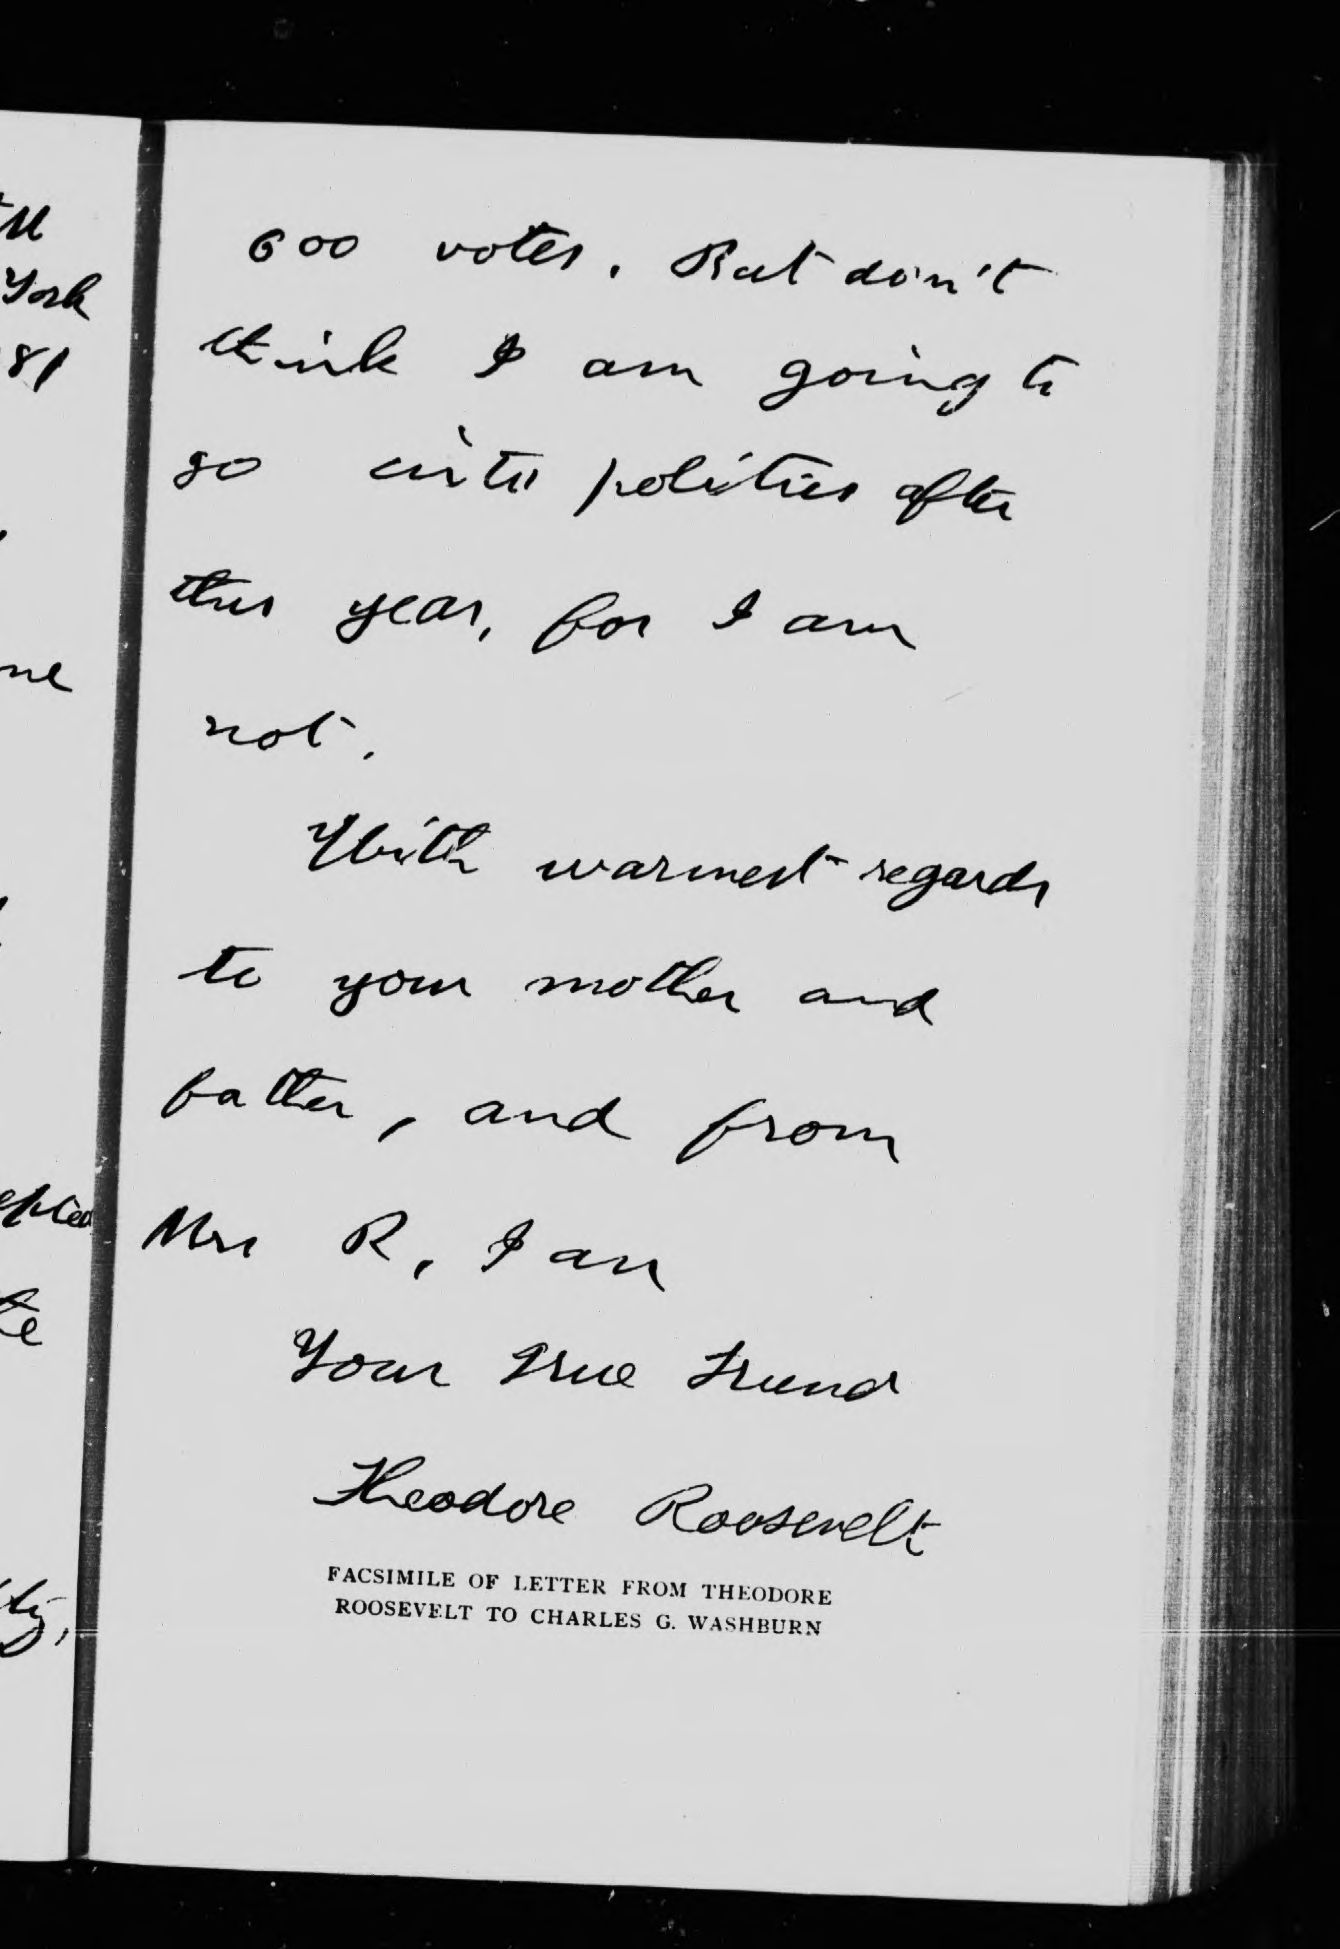 York
81
600 votes. But don't
think I am going to
go into politics after
this year, for I am
not.
With warmest regards
to your mother and
father, and from
Mrs R, I am
Your true friend
Theodore Roosevelt
FACSIMILE OF LETTER FROM THEODORE
ROOSEVELT TO CHARLES G. WASHBURN